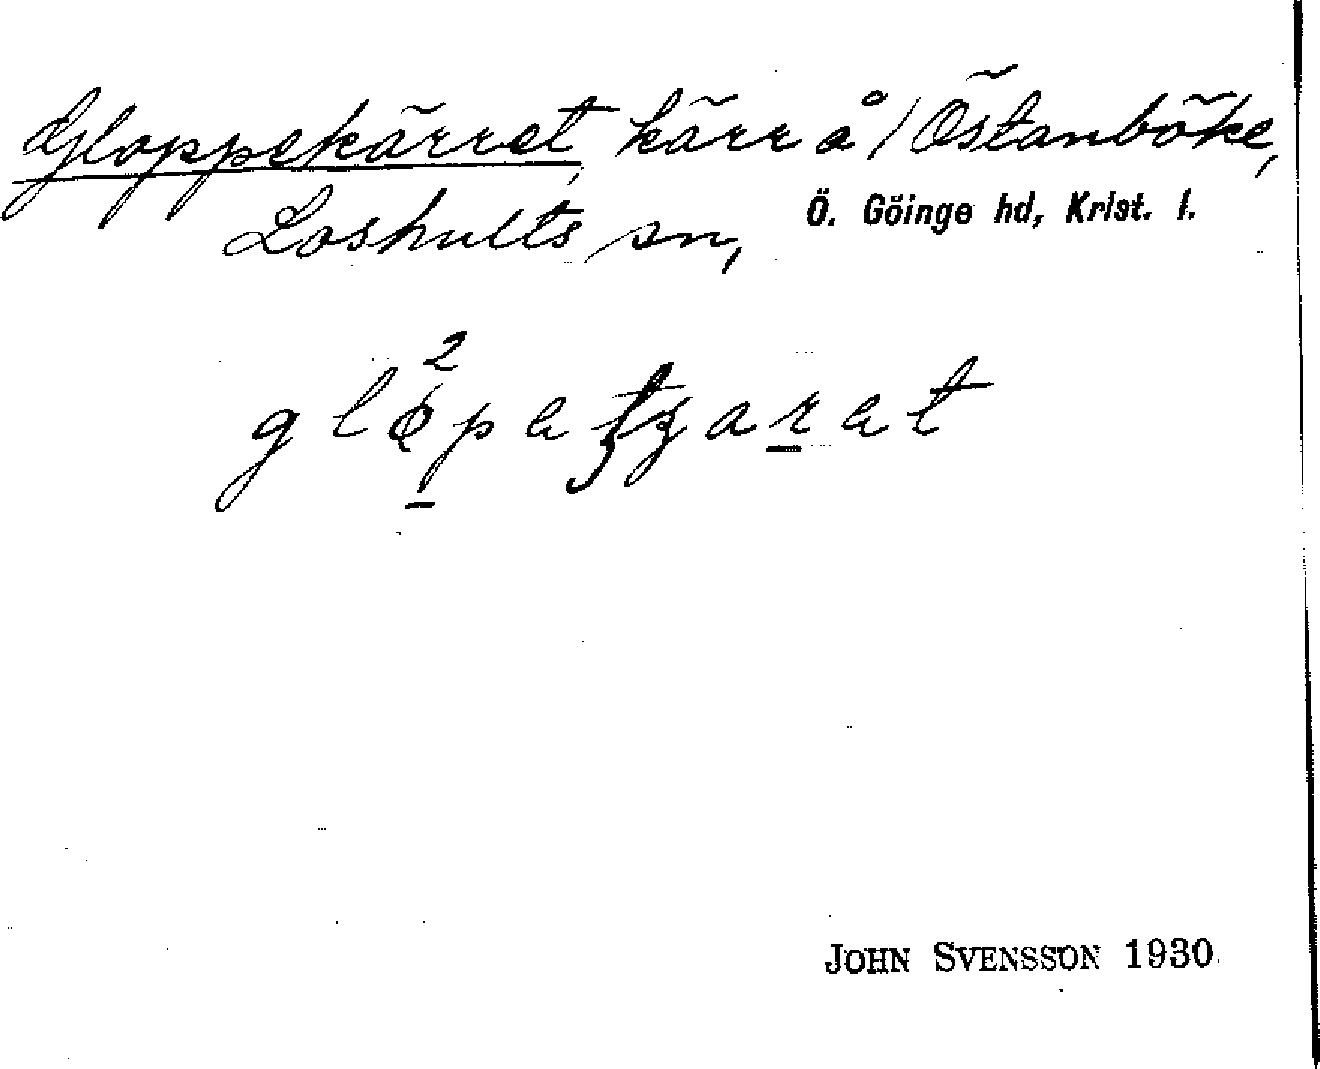 Gloppekärret, kärr å / Östanböke,
Loshults sn, Ö. Göinge hd, Krist. l.
JOHN SVENSSON 1930